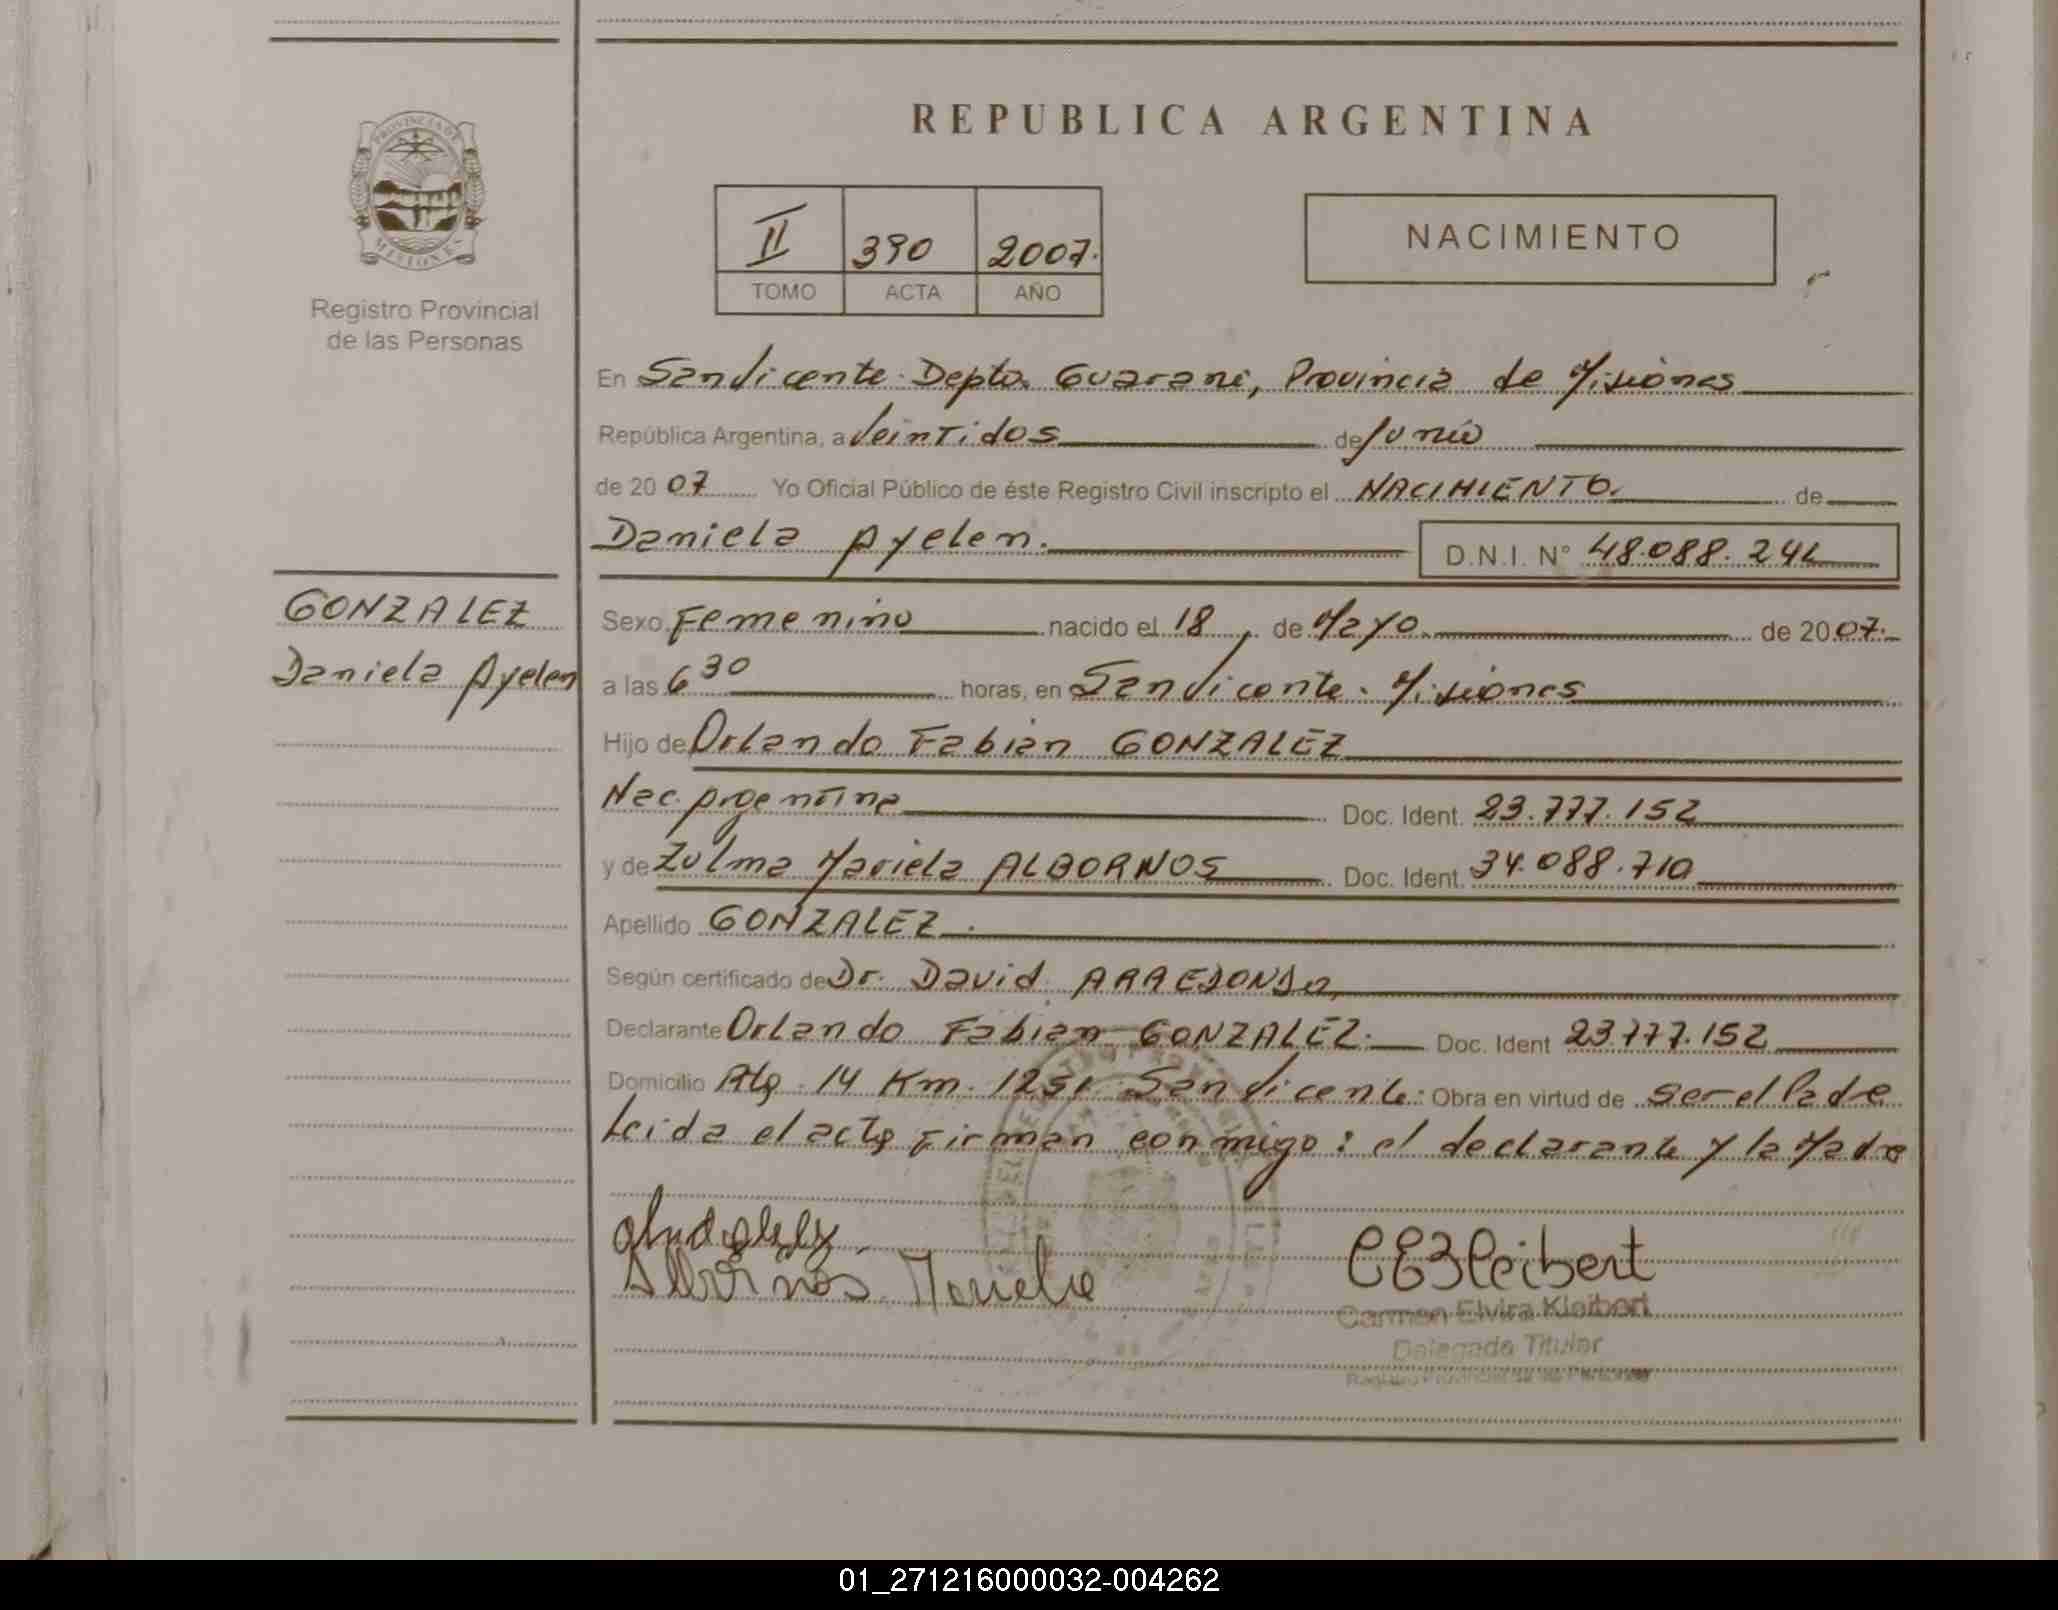 REPUBLICA ARGENTINA
PROVINCIA DE
MISIONES
Registro Provincial
de las Personas
II 390 2007.
TOMO ACTA AÑO
NACIMIENTO
En San Vicente. Depto. Guarani, Provincia de Misiones
República Argentina, a Veintidos de Junio
de 2007 Yo Oficial Público de éste Registro Civil inscripto el NACIMIENTO. de
Daniela Ayelen. D.N.I. N° 48.088.242
GONZALEZ
Daniela Ayelen
Sexo Femenino nacido el 18 de Mayo. de 2007.
a las 6 30 horas, en San Vicente. Misiones
Hijo de Orlando Fabian GONZALEZ
Nac. Argentina Doc. Ident. 23.777.152
y de Zulma Mariela ALBORNOS Doc. Ident. 34.088.710
Apellido GONZALEZ.
Según certificado de Dr. David ARREDONDO
Declarante Orlando Fabian GONZALEZ. Doc. Ident 23.777.152
Domicilio Rta. 14 Km. 1251 San Vicente. Obra en virtud de ser el Padre
Leida el acta firman conmigo: el declarante y la Madre
Albornos Mariela
CEKleibert
Carmen Elvira Kleibert
Delegada Titular
Registro Provincial de las Personas
01_271216000032-004262